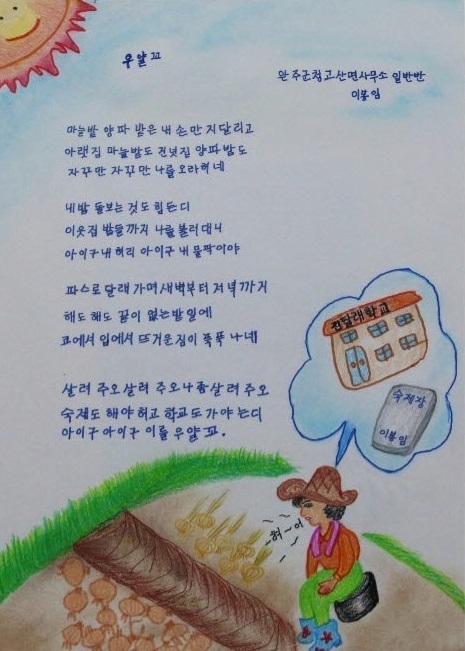 우얄꼬
완주군청고산면사무소 일반반
이봉임
마늘밭 양파 밭은 내 손만 지달리고
아랫집 마늘밭도 건넛집 양파밭도
자꾸만 자꾸만 나를 오라허네
내밭 돌보는 것도 힘든디
이웃집 밭들까지 나를 불러대니
아이구 내 허리 아이구 내 물팍이야
파스로 달래가며 새벽부터 저녁까지
해도 해도 끝이 없는 밭일에
코에서 입에서 뜨거운 짐이 푹푹 나네
살려 주오 살려 주오 나좀 살려 주오
숙제도 해야 허고 학교도 가야 는디
아이구 아이구 이를 우얄꼬.
진달래학교
숙제장
이봉임
허~어